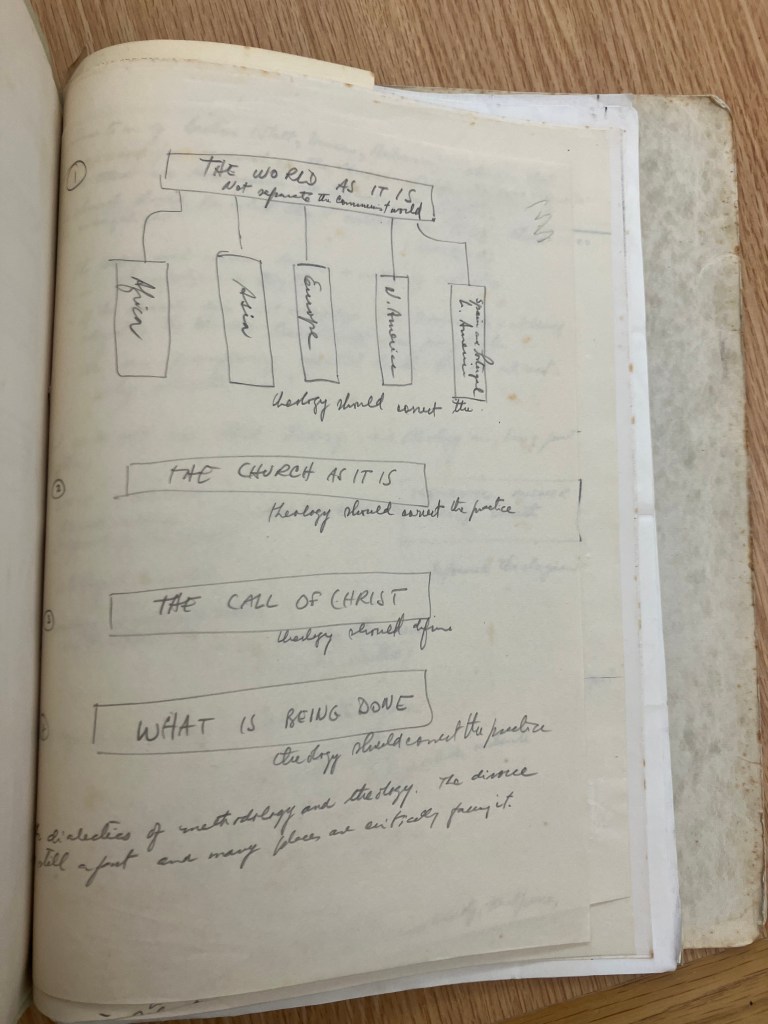 1
THE WORLD AS IT IS
Not separate the communist world
Africa
Asia
Europe
N. America
Spain and Portugal
L. America
theology should correct the
2
THE CHURCH AS IT IS
theology should correct the practice
3
THE CALL OF CHRIST
theology should define
WHAT IS BEING DONE
theology should correct the practice
dialectics of methodology and theology. The divorce
still a fact and many places are critically facing it.